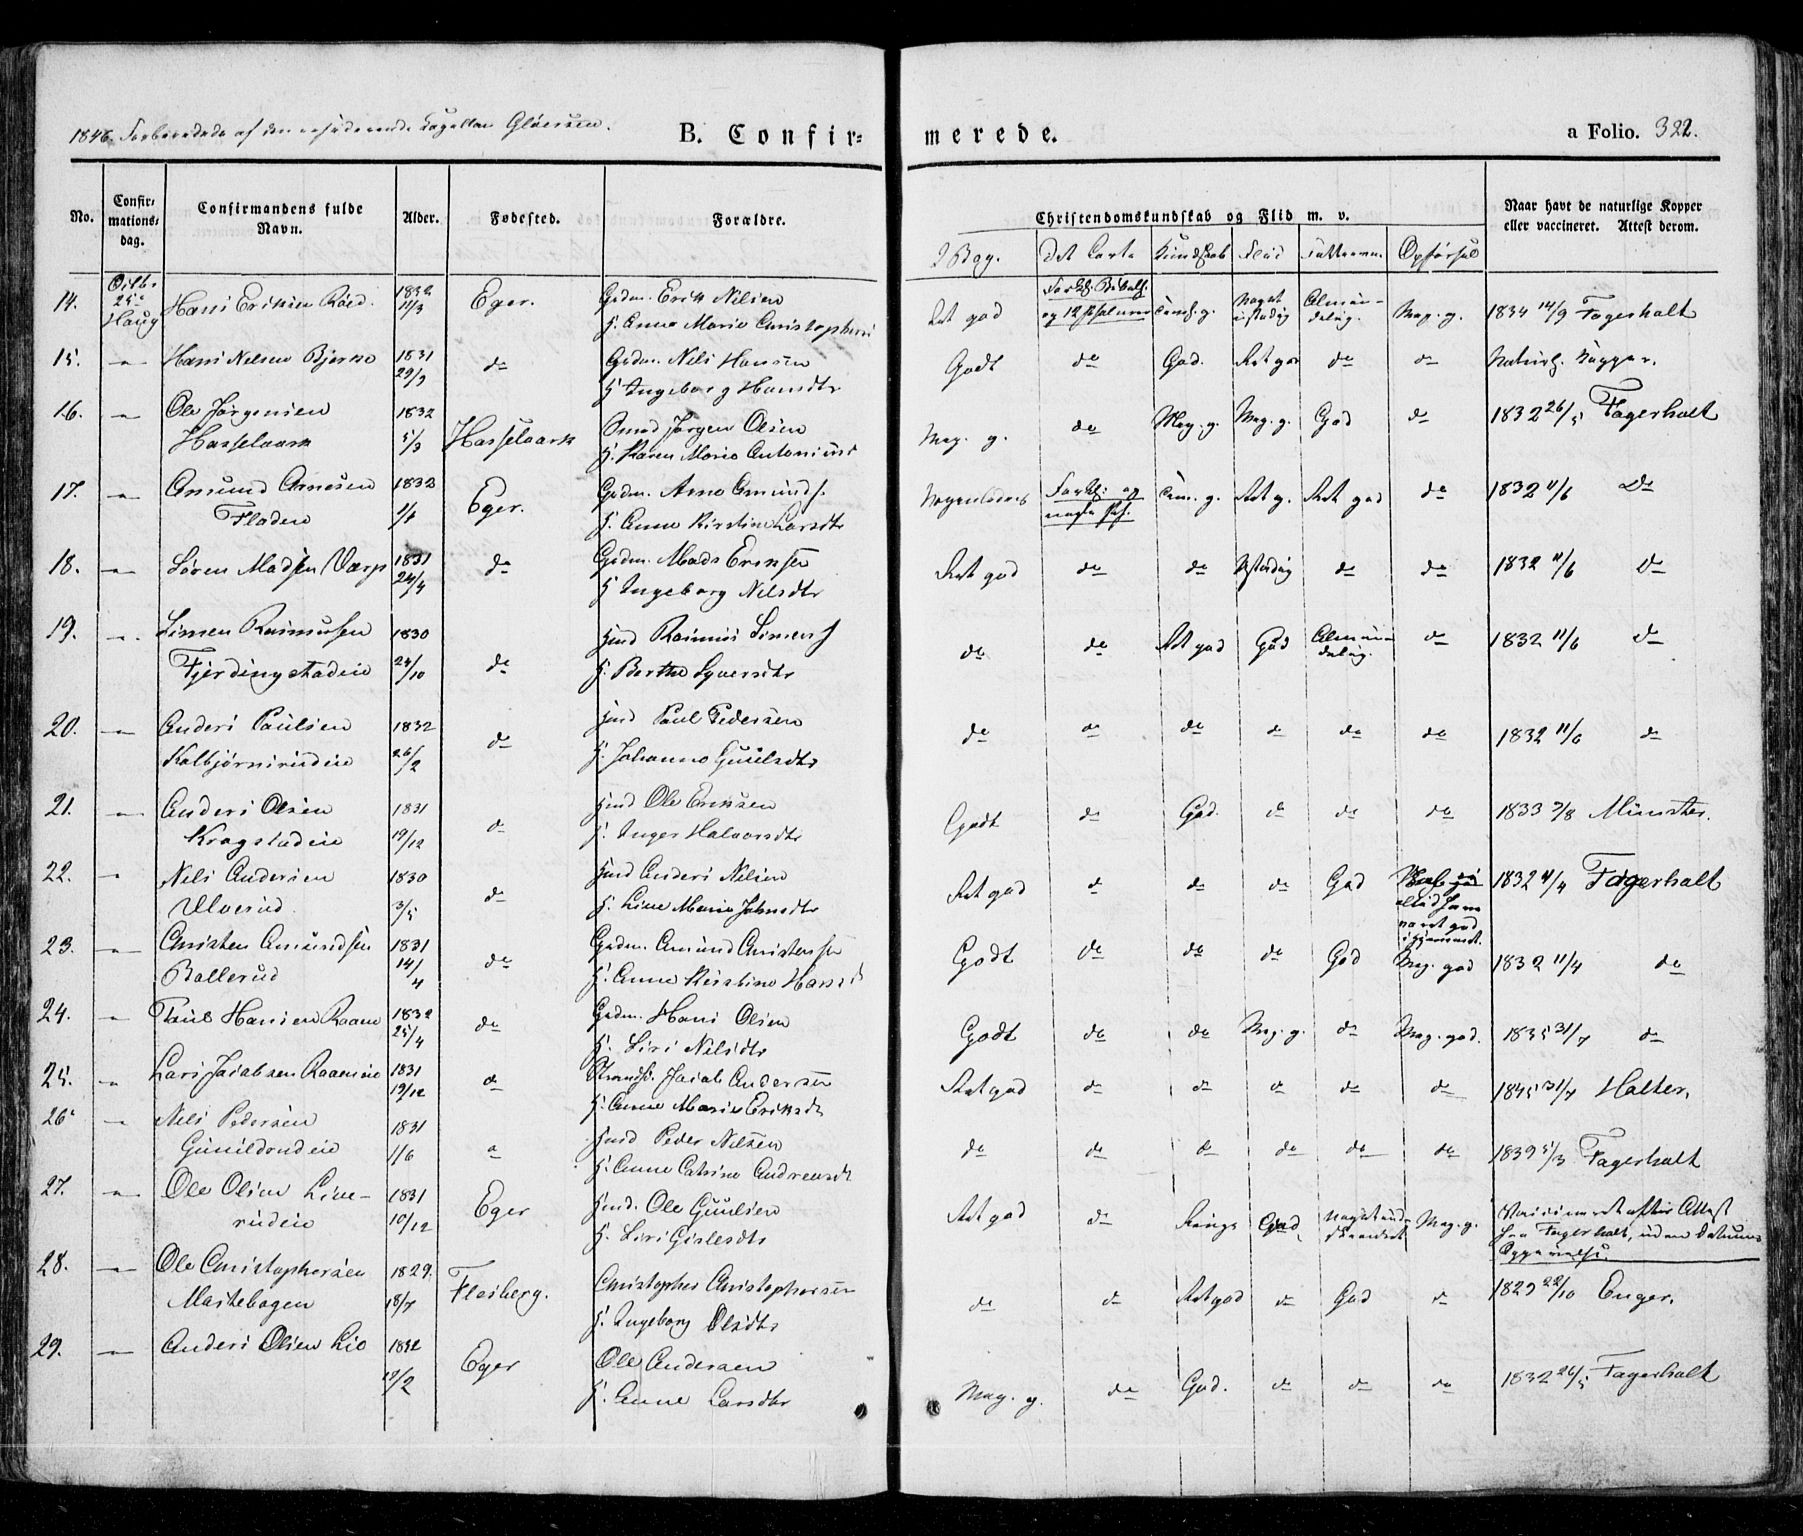 1846. Forberedede af den residerende Capellan Gløersen.
B. Confirmerede.
a Folio. 322.
No. Confirmations-dag. Confirmandens fulde Navn. Alder. Fødested. Forældre. Christendomskundskab og Flid m. v. Naar havt de naturlige Kopper eller vaccineret. Attest derom.
Det Lærte Kundskab Flid Fatteevne. Opførsel
14. Octbr. 25de Haug Hans Eriksen Roed. 1832 11/3 Eger. Gdm. Erik Nilsen
H. Anne Marie Christophersd
Ret god og 12 Psalmer temh. g. Noget ustadig Almindelig. Meg. g. 1834 14/9 Fagerholt
15. Hans Nilsen Bjerke 1831 29/3 do Gdm. Nils Hansen
H. Ingeborg Hansdtr
Godt do God. Ret god do do Naturl. Kopper.
16. Ole Jørgensen Hasselaark 1832 5/3 Hasselaark Smed Jørgen Olsen
H. Karen Marie Antoniusd
Meg. g. do Meg. g. Meg. g. God do 1832 26/5 Fagerholt
17. Amund Arnesen Floden 1832 Eger. Gdm. Arne Amunds.
H. Anne Kirstine Larsdtr
Nogenledes Forkl: og nogle Ps. Tem. g. Ret g. Ret god do 1832 11/6 Do
18. Søren Madsen Varp 1831 24/4 do Gdm. Mads Eriksen
H. Ingeborg Nilsdtr
Ret god do do Ustadig do do 1832 11/6 Do
19. Simen Rasmusen Fjerdingstadeie 1830 24/10 do Hmd Rasmus Simens
H. Berthe Syversdtr
do do Ret god God Almindelig. do 1832 11/6 Do
20. Anders Paulsen Kolbjørnsrudeie 1832 26/2 do Hmd Paul Pedersen
H. Johanne Guulsdtr
do do do do do do 1832 11/6 do
21. Anders Olsen Kragstadeie 1831 19/12 do Hmd Ole Eriksen
H. Inger Halvorsdtr
Godt do God. do do do 1833 3/8 Münster.
22. Nils Andersen Ulverud 1830 3/5 do Hmd Anders Nilsen
H. Live Marie Johnsdtr
Ret god do do do God altid være god i Hjemmet. 1832 11/4 Fagerholt
23. Christen Amundsen Bollerud 1831 14/4 do Gdm. Amund Christensen
H. Anne Kirstine Hansd
Godt do do do God Meg. god 1832 11/4 do
24. Poul Hansen Raaen 1832 25/4 do Gdm. Hans Olsen
H. Siri Nilsdtr
Godt do do Meg. g. do Meg. god. 1835 31/7 do
25. Lars Jacobsen Raaeneie 1831 19/12 do Strands. Jacob Andersen
H. Anne Marie Eriksdt
Ret god do do do do do 1845 31/7 Holter.
26. Nils Pedersen Gunildrudeie 1831 1/6 do Hmd Peder Nilsen
H. Anne Catrine Andreasdt
do do do do do do 1839 5/3 Fagerholt
27. Ole Olsen Linerudeie 1831 10/12 Eger Hmd. Ole Guulsen
H. Siri Gislesdtr
Ret god do Ringe God. Noget indskrænket Meg. g. Vaccineret efter Attest fra Fagerholt, uden Datums Opgivelse.
28. Ole Christophersen Mastebogen 1829. 18/7 Flesberg. Christopher Christophersen
H. Ingeborg Olsdtr
do do Ret god do God do 1829 22/10 Enger.
29. Anders Olsen Lio 1832 19/2 Eger Ole Andersen
H. Anne Larsdtr
Meg. g. do God. do do do 1832 26/5 Fagerholt